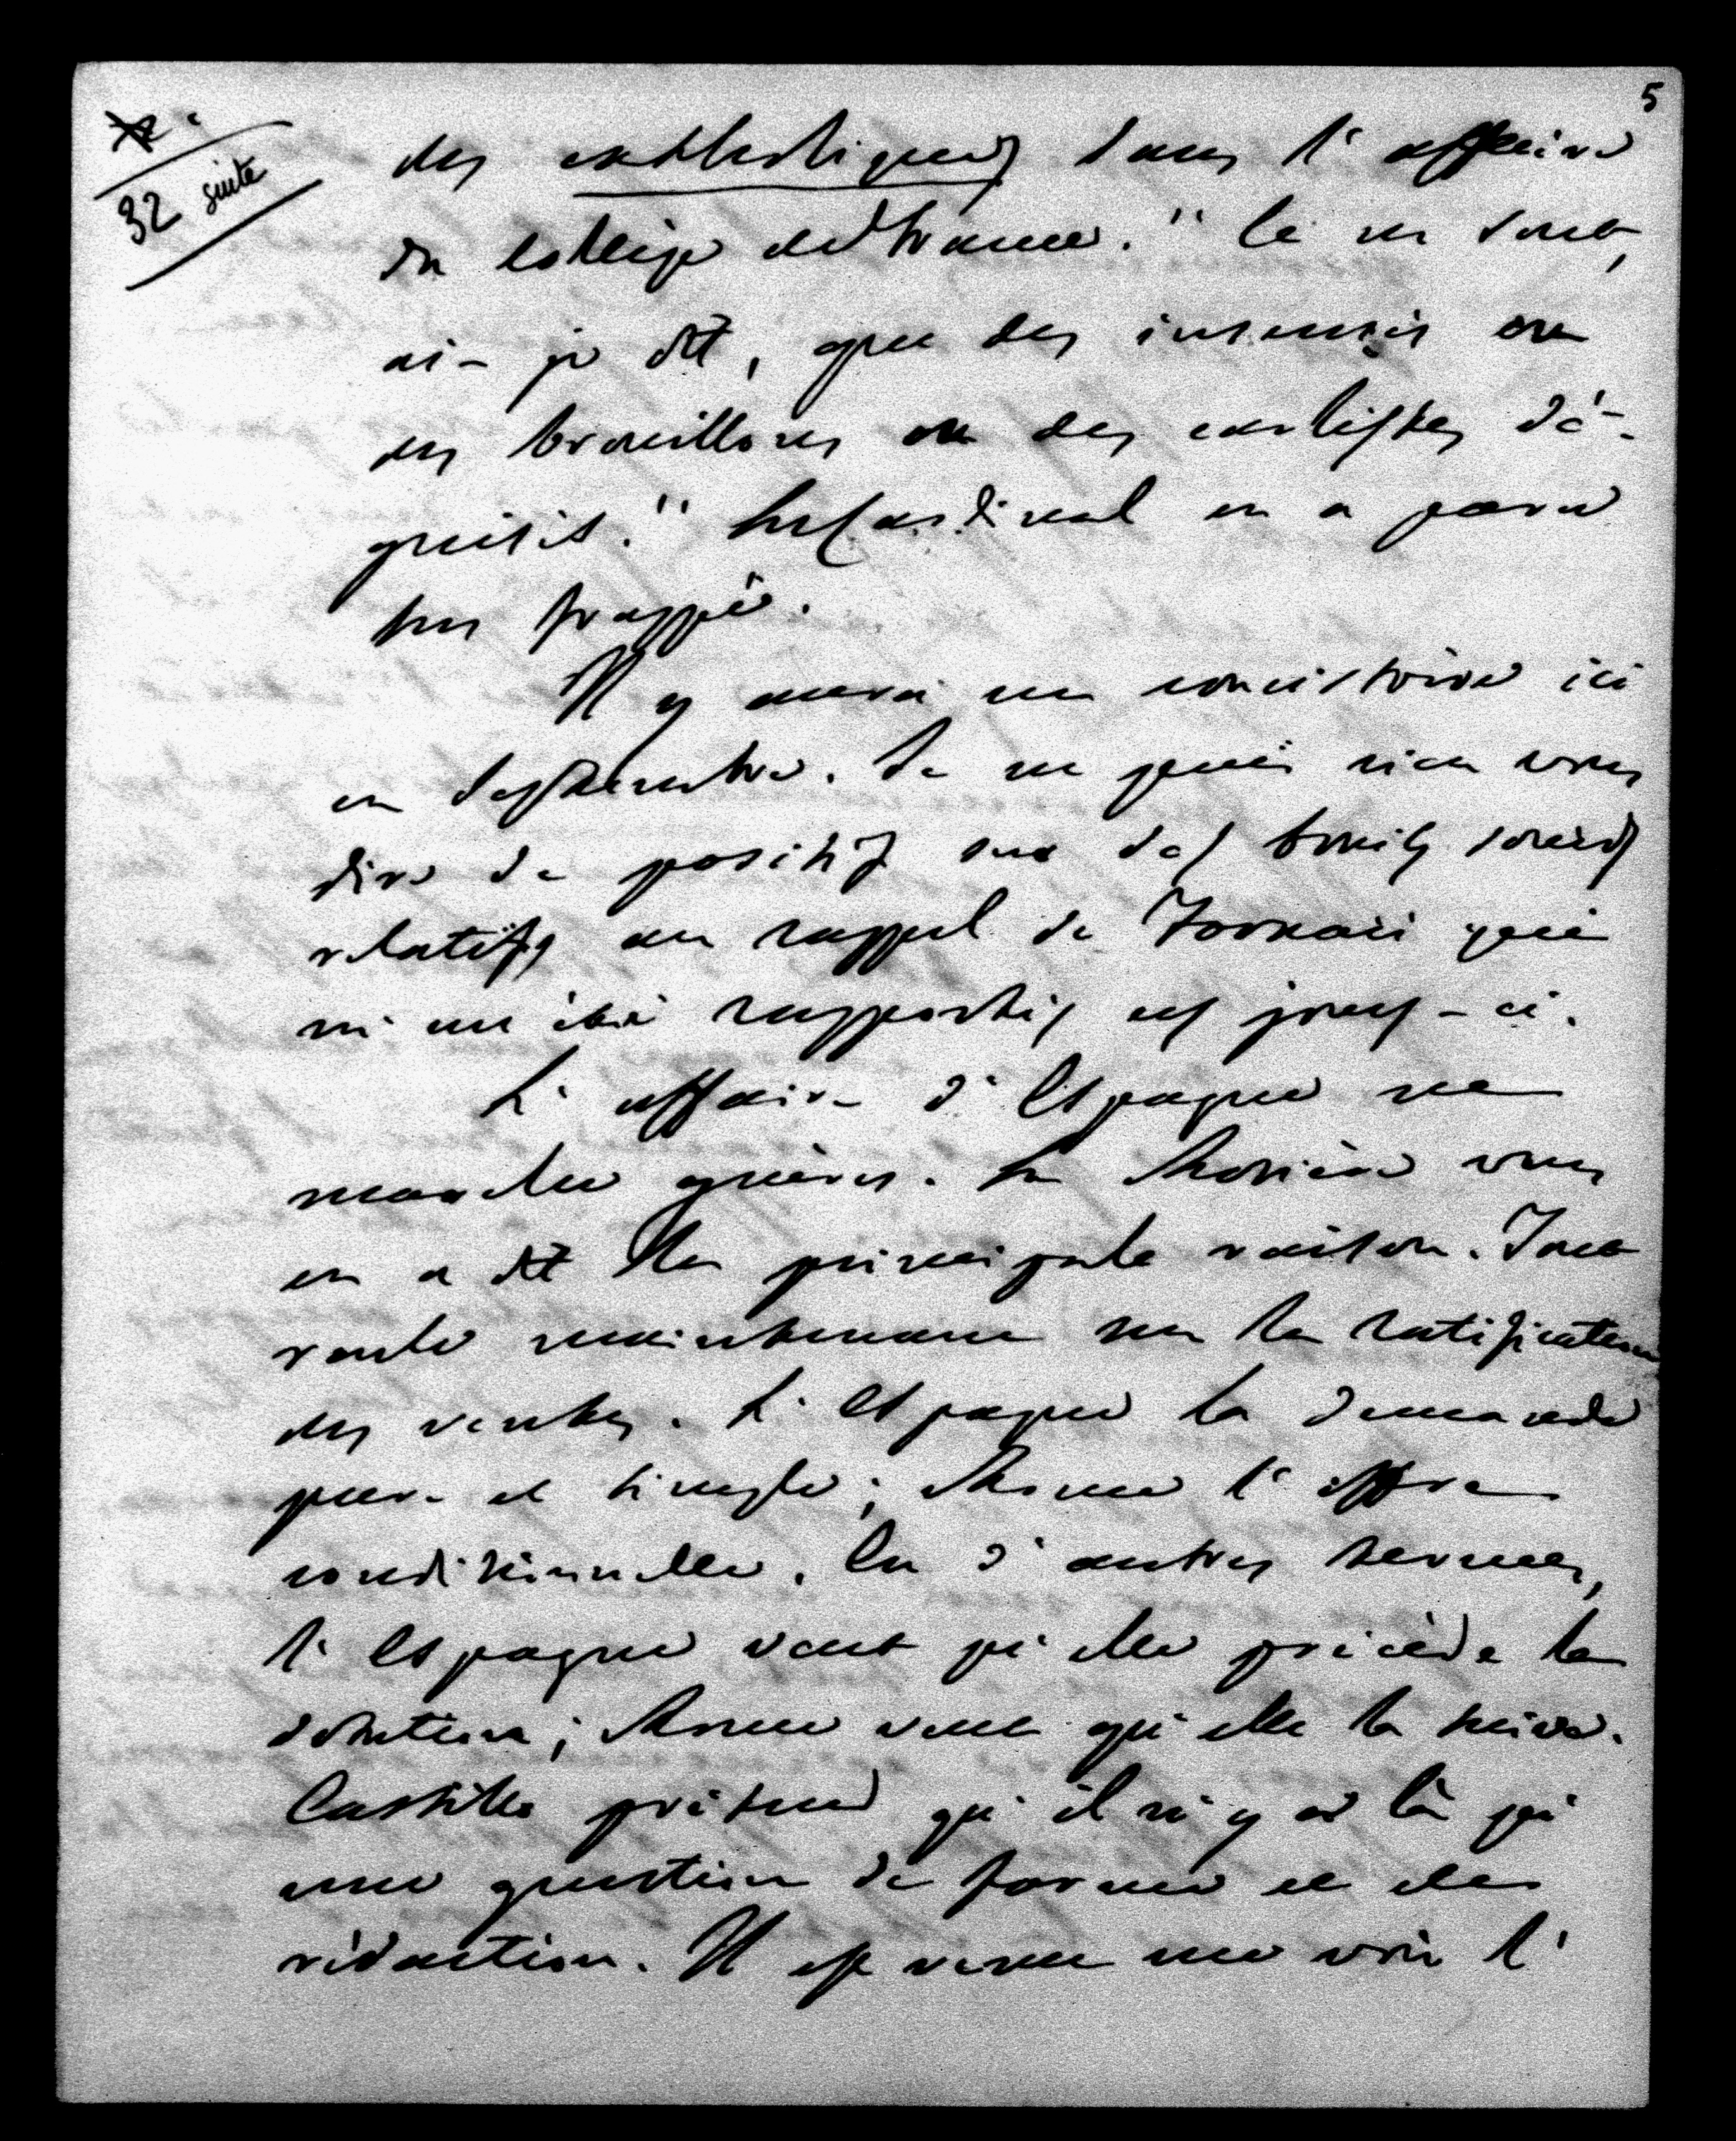 5
32 suite
des catholiques dans l'affaire
du Collège de France." Ce ne sont,
ai-je dit, que des insensés ou
des brouillons ou des carlistes dé-
guisés." Le Cardinal en a paru
très frappé.
Il y aura un consistoire ici
en Septembre. Je ne puis rien vous
dire de positif sur des bruits sourds
relatifs au rappel de Fornari qui
m'ont été rapportés ces jours-ci.
L'affaire d'Espagne ne
marche guères. La Rosière vous
en a dit la principale raison. Tout
roule maintenant sur la ratification
des ventes. L'Espagne la demande
pure et simple; Rome l'offre
conditionnelle. En d'autres termes,
l'Espagne veut qu'elle précède la
dotation; Rome veut qu'elle la suive.
Castillo prétend qu'il n'y a là qu'
une question de forme et de
rédaction. Il est venu me voir l'